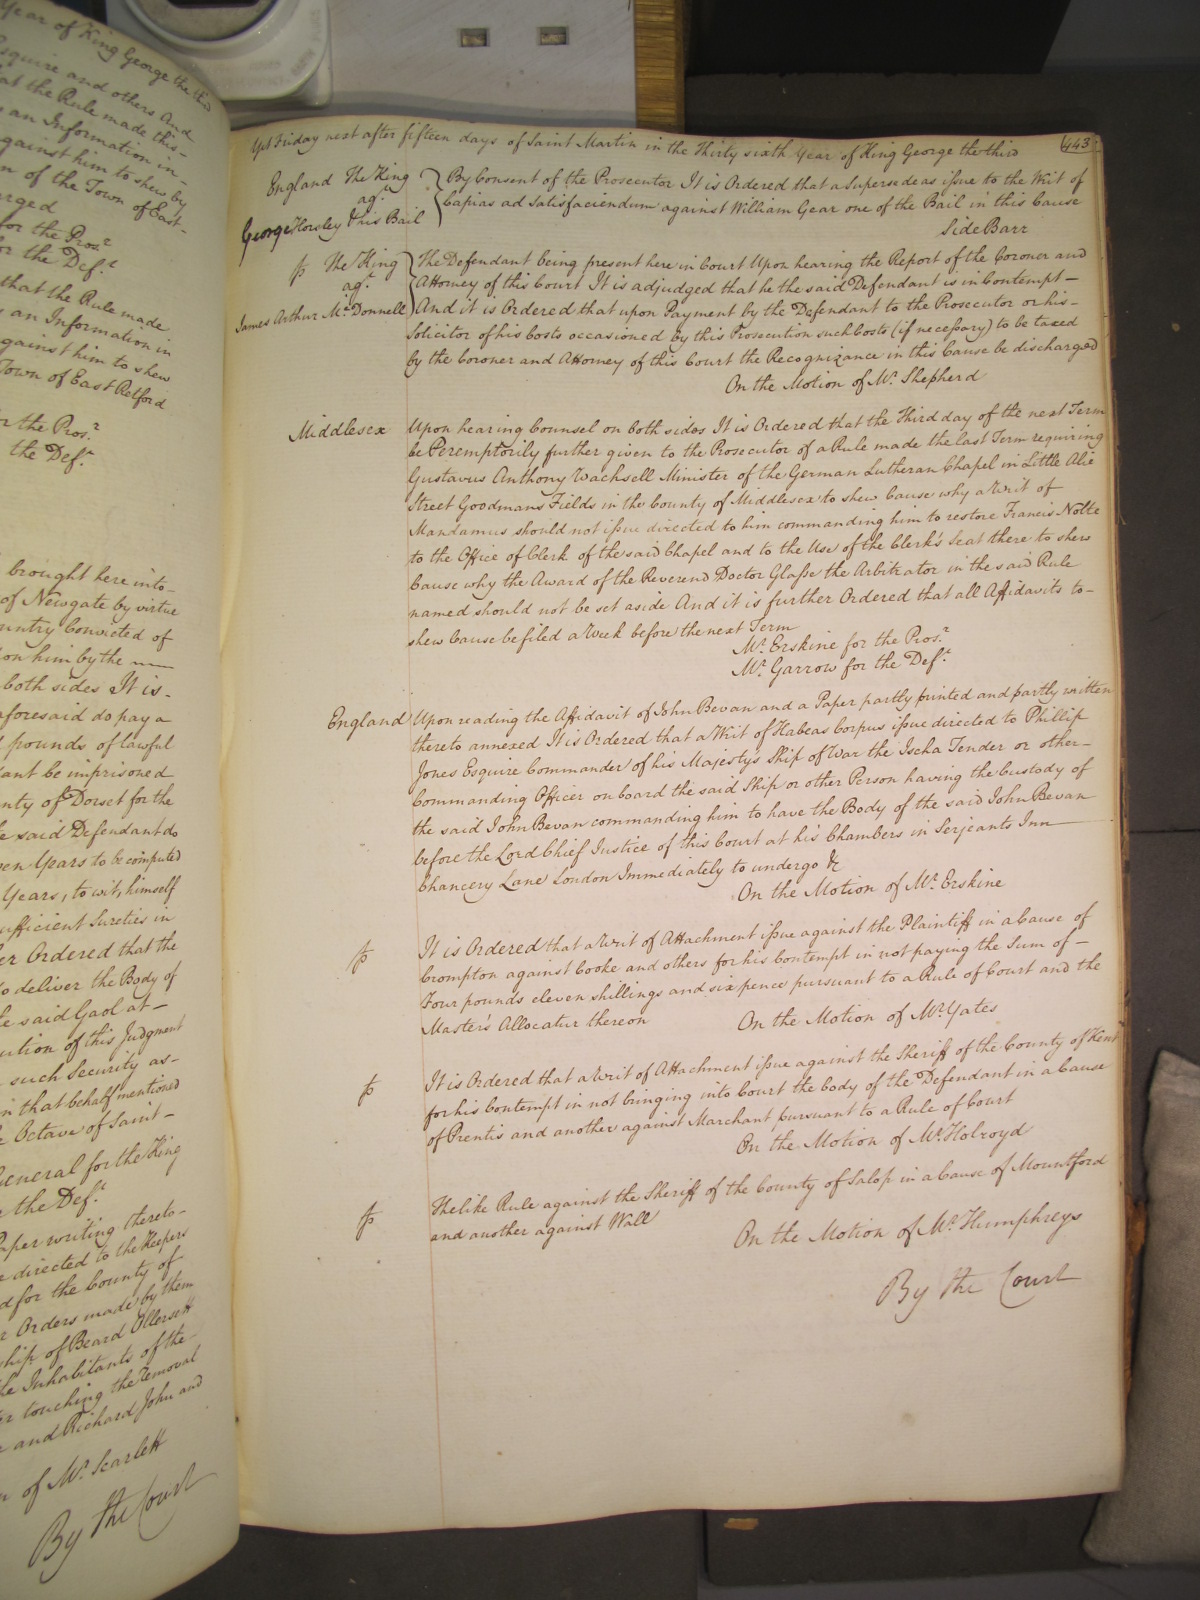 Year of King George the third
Esquire and others And
at the Rule made this-
an Information in-
against him to shew by
n of the Town of East-
arged
for the Pros.r
for the Def.t
that the Rule made
an Information in
against him to shew
Town of East Retford
the Pros.r
the Def.t
brought here into-
of Newgate by virtue
untry Convicted of
on him by the
both sides It is-
aforesaid do pay a
pounds of lawful
ant be imprisoned
nty of Dorset for the
e said Defendant do
en Years to be computed
Years, to wit, himself
ufficient Sureties in
er Ordered that the
to deliver the Body of
he said Gaol at-
ution of this Judgment
such Security as-
in that behalf mentioned
Octave of Saint-
General for the King
the Def.t
Paper writing thereto-
directed to the Keepers
d for the County of
r Orders made by them
ship of Beard Ollersett
he Inhabitants of the
r touching the removal
and Richard John and
of Mr. Scarlett
By the Court
443
Yet Friday next after fifteen days of Saint Martin in the Thirty sixth Year of King George the third
England The King
ag.t
George Horsley & his Bail
By Consent of the Prosecutor It is Ordered that a Supersedeas issue to the Writ of
Capias ad Satisfaciendum against William Gear one of the Bail in this Cause
Side Barr
The King
ag.t
James Arthur Mc. Donnell
The Defendant being present here in Court Upon hearing the Report of the Coroner and
Attorney of this Court It is adjudged that he the said Defendant is in Contempt-
And it is Ordered that upon Payment by the Defendant to the Prosecutor or his-
Solicitor of his Costs occasioned by this Prosecution such Costs (if necessary) to be taxed
by the Coroner and Attorney of this Court the Recognizance in this Cause be discharged
On the Motion of Mr. Shepherd
Middlesex
Upon hearing Counsel on both sides It is Ordered that the Third day of the next Term
be Peremptorily further given to the Prosecutor of a Rule made the last Term requiring
Gustavus Anthony Wachsell Minister of the German Lutheran Chapel in Little Alie
Street Goodmans Fields in the County of Middlesex to shew Cause why a Writ of
Mandamus should not issue directed to him commanding him to restore Francis Nolte
to the Office of Clerk of the said Chapel and to the Use of the Clerk's Seat there to shew
Cause why the Award of the Reverend Doctor Glasse the Arbitrator in the said Rule
named should not be set aside And it is further Ordered that all Affidavits to-
shew Cause be filed a Week before the next Term
Mr. Erskine for the Pros.r
Mr. Garrow for the Def.t
England
Upon reading the Affidavit of John Bevan and a Paper partly printed and partly written
thereto annexed It is Ordered that a Writ of Habeas Corpus issue directed to Phillip
Jones Esquire Commander of his Majesty's Ship of War the Ischa Tender or other-
Commanding Officer on board the said Ship or other Person having the Custody of
the said John Bevan commanding him to have the Body of the said John Bevan
before the Lord Chief Justice of this Court at his Chambers in Serjeants Inn
Chancery Lane London Immediately to undergo &c
On the Motion of Mr. Erskine
It is Ordered that a Writ of Attachment issue against the Plaintiff in a Cause of
Crompton against Cooke and others for his Contempt in not paying the Sum of-
Four pounds eleven shillings and six pence pursuant to a Rule of Court and the
Master's Allocatur thereon
On the Motion of Mr. Yates
It is Ordered that a Writ of Attachment issue against the Sheriff of the County of Kent
for his Contempt in not bringing into Court the body of the Defendant in a Cause
of Prentis and another against Marchant pursuant to a Rule of Court
On the Motion of Mr. Holroyd
The like Rule against the Sheriff of the County of Salop in a Cause of Mountford
and another against Wall
On the Motion of Mr. Humphreys
By the Court